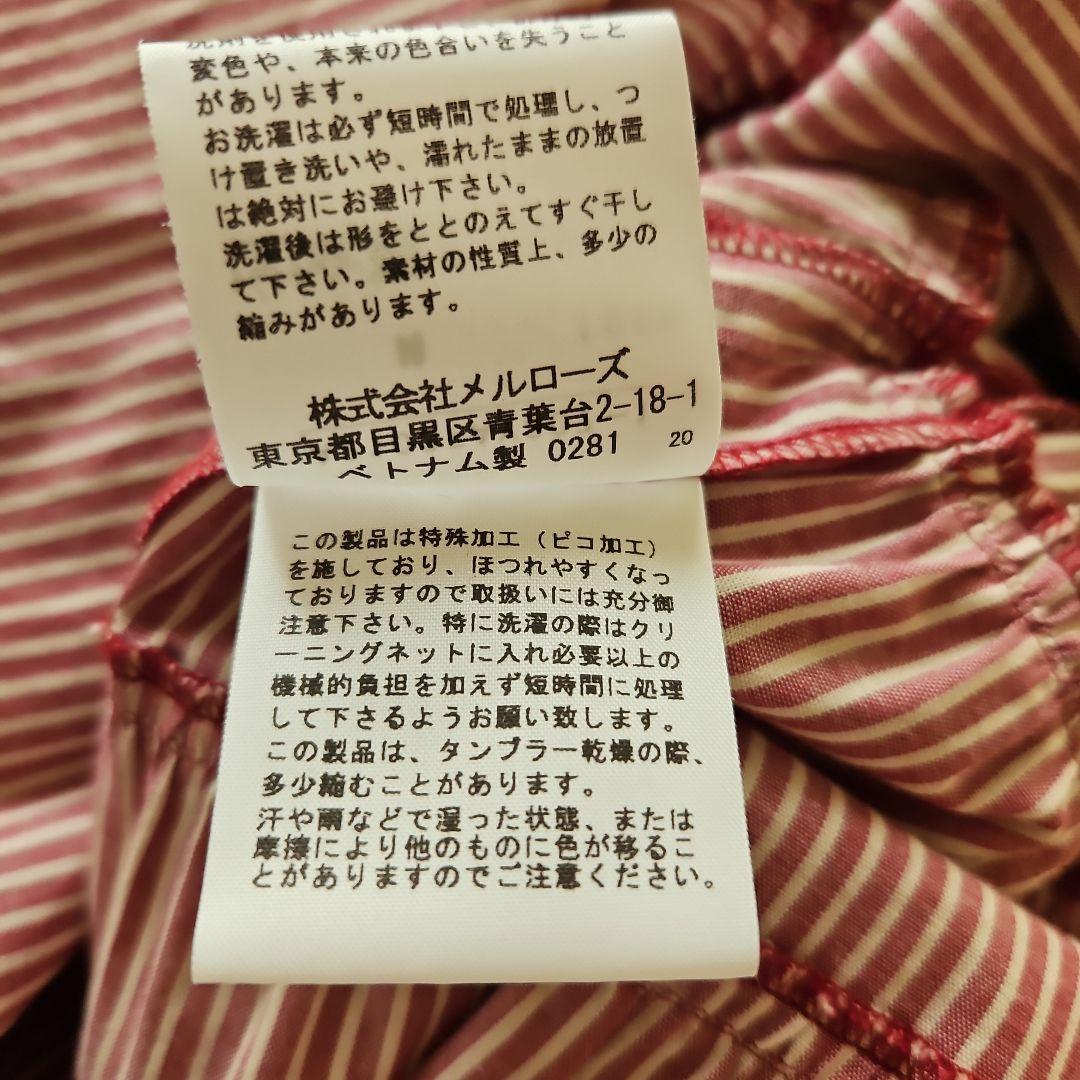 変色や、本来の色合いを失うこと
があります。
お洗濯は必ず短時間で処理し、つ
け置き洗いや、濡れたままの放置
は絶対にお避け下さい。
洗濯後は形をととのえてすぐ干し
て下さい。素材の性質上、多少の
縮みがあります。
株式会社メルローズ
東京都目黒区青葉台2-18-1
ベトナム製 0281 20
この製品は特殊加工（ピコ加工）
を施しており、ほつれやすくなっ
ておりますので取扱いには充分御
注意下さい。特に洗濯の際はクリ
ーニングネットに入れ必要以上の
機械的負担を加えず短時間に処理
して下さるようお願い致します。
この製品は、タンブラー乾燥の際、
多少縮むことがあります。
汗や雨などで湿った状態、または
摩擦により他のものに色が移るこ
とがありますのでご注意ください。